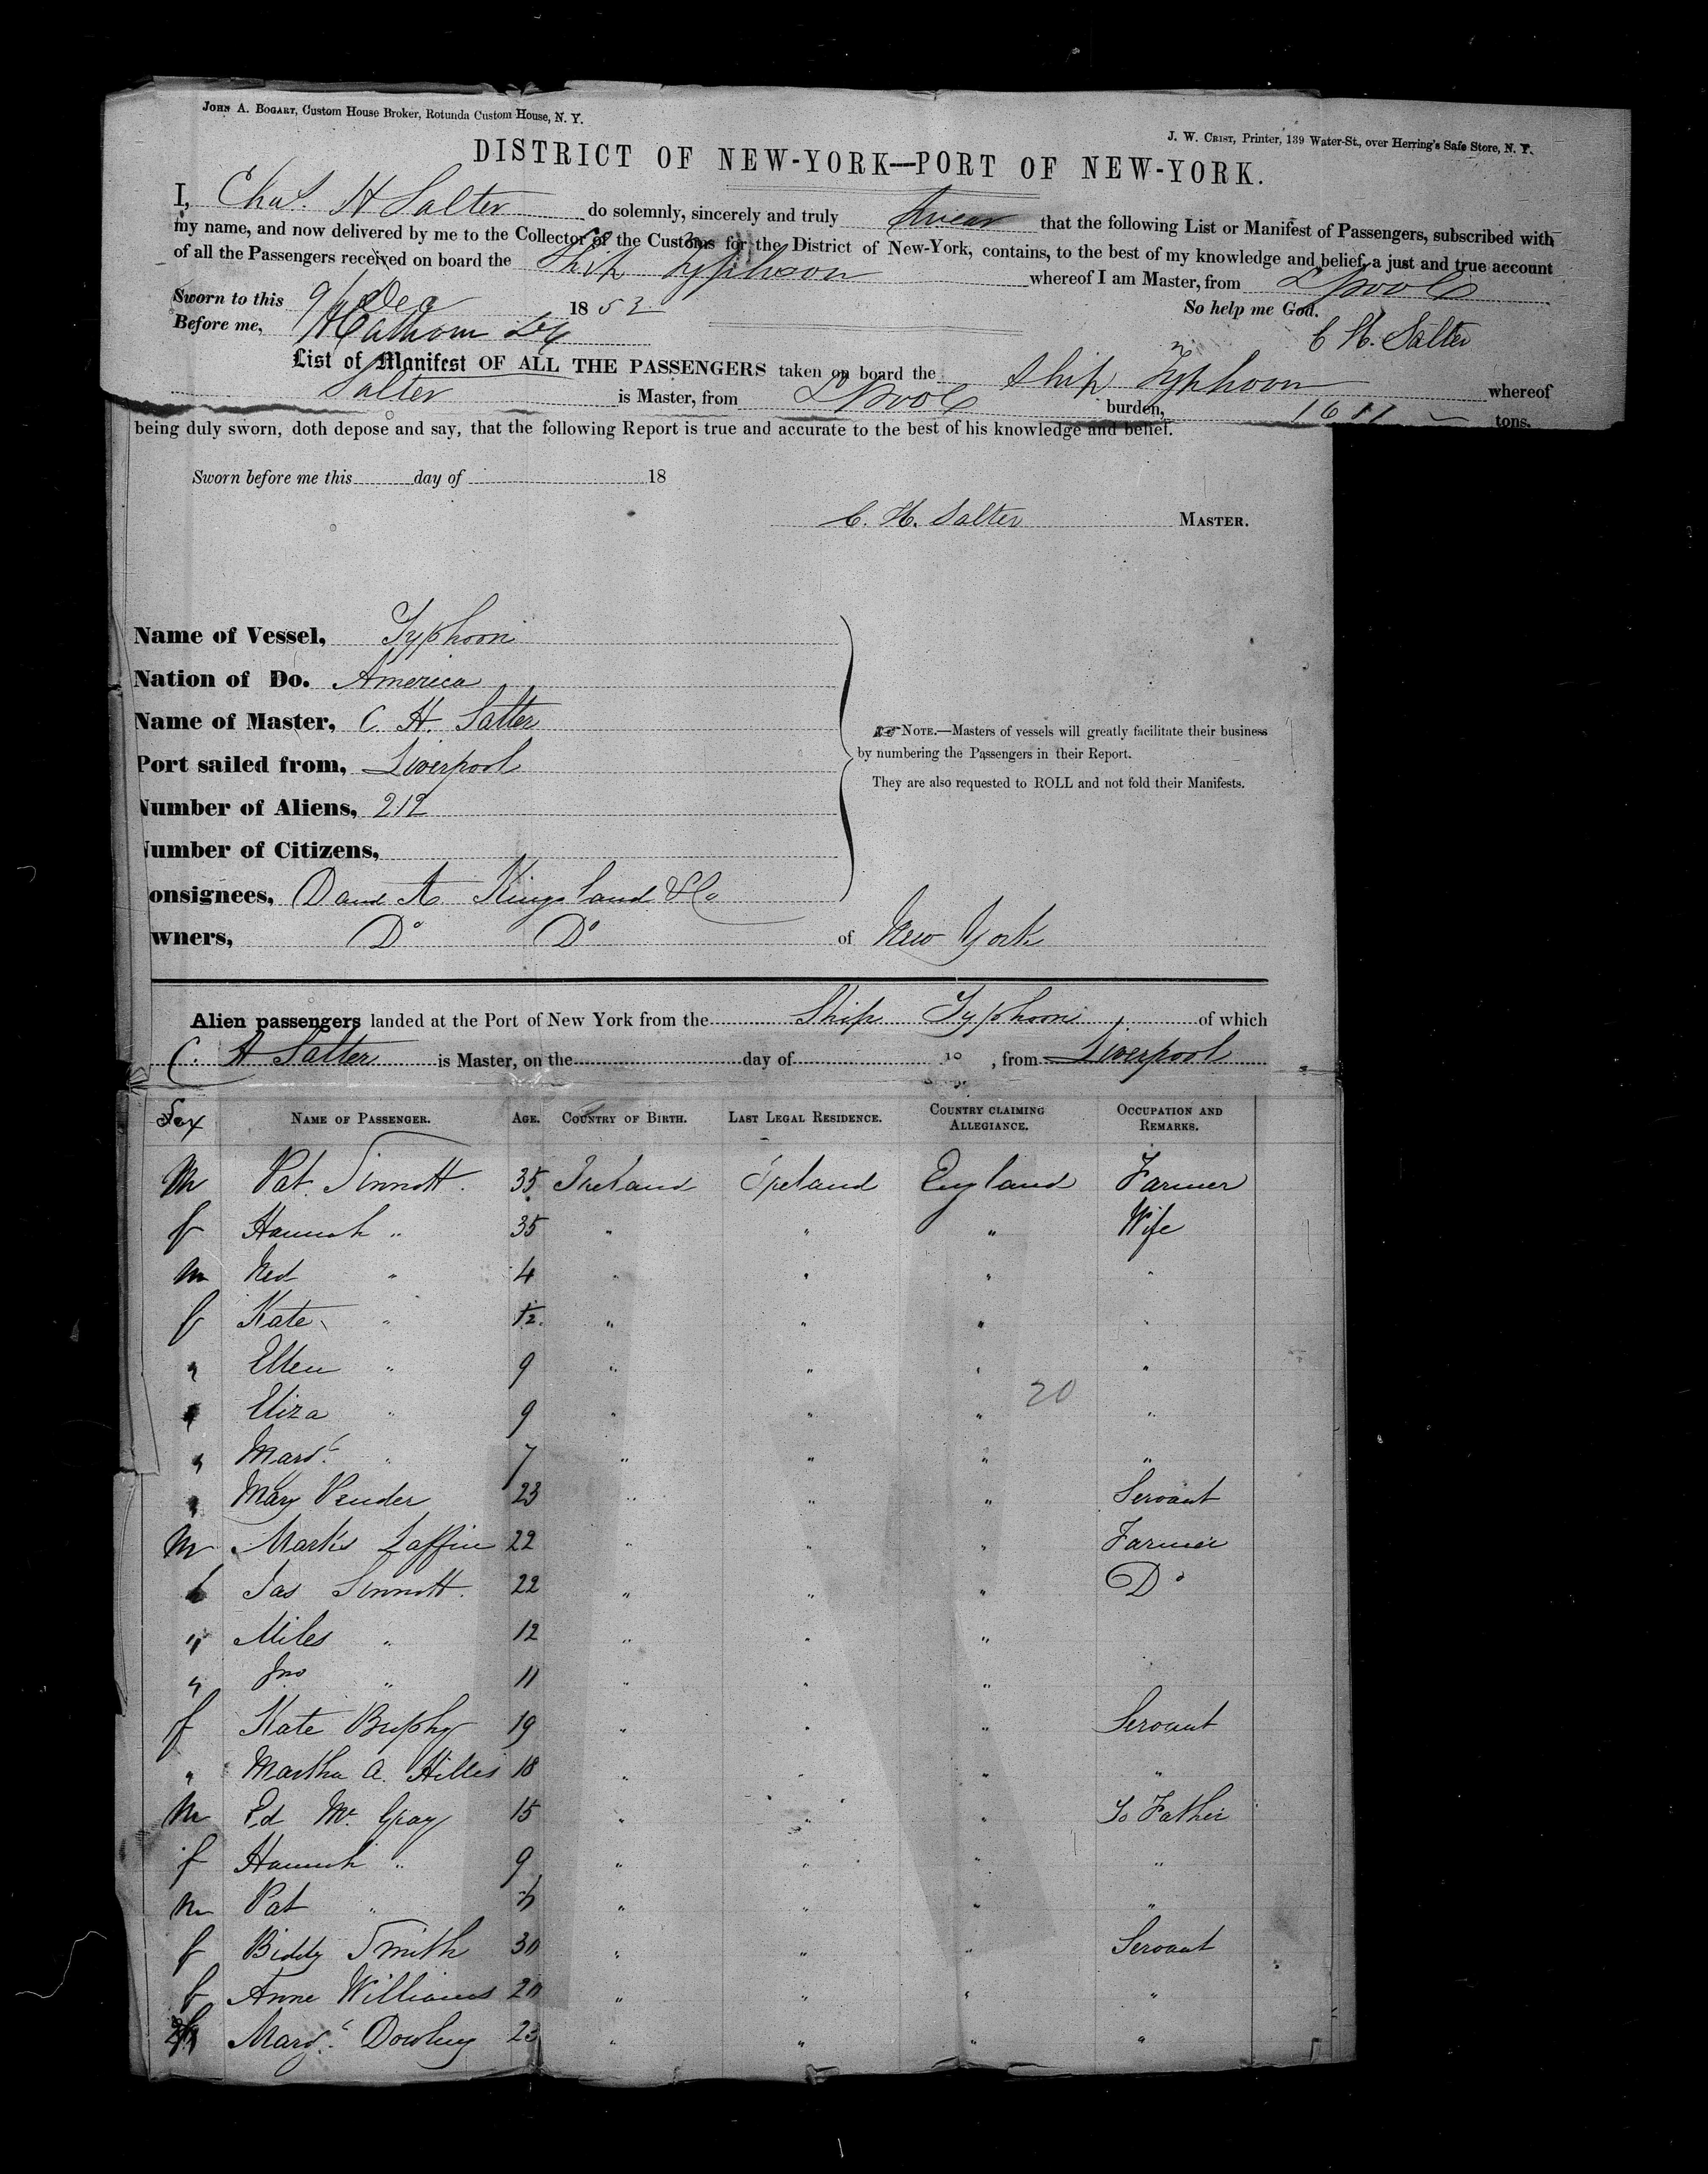 JOHN A. BOGART, Custom House Broker, Rotunda Custom House, N. Y.
J. W. CRIST, Printer, 139 Water-St., over Herring's Safe Store, N. Y.
DISTRICT OF NEW-YORK—PORT OF NEW-YORK.
I, Chas. H Salter do solemnly, sincerely and truly Swear that the following List or Manifest of Passengers, subscribed with
my name, and now delivered by me to the Collector of the Customs for the District of New-York, contains, to the best of my knowledge and belief, a just and true account
of all the Passengers received on board the Ship Typhoon whereof I am Master, from L'pool
Sworn to this 9th Dec 1853 So help me God.
Before me, C H. Salter
List of Manifest OF ALL THE PASSENGERS taken on board the Ship Typhoon whereof
Salter is Master, from L'pool burden, 1611 tons.
being duly sworn, doth depose and say, that the following Report is true and accurate to the best of his knowledge and belief.
Sworn before me this day of 18
C. H. Salter MASTER.
Name of Vessel, Typhoon
Nation of Do. America
Name of Master, C. H. Salter
Port sailed from, Liverpool
Number of Aliens, 212
Number of Citizens,
onsignees, D and A Kingsland & Co
wners, Do Do of New York
NOTE.—Masters of vessels will greatly facilitate their business
by numbering the Passengers in their Report.
They are also requested to ROLL and not fold their Manifests.
Alien passengers landed at the Port of New York from the Ship Typhoon of which
C. H Salter is Master, on the day of 18 , from Liverpool
Sex NAME OF PASSENGER. AGE. COUNTRY OF BIRTH. LAST LEGAL RESIDENCE. COUNTRY CLAIMING ALLEGIANCE. OCCUPATION AND REMARKS.
M Pat Sinnott. 35 Ireland Ireland England Farmer
f Hannah " 35 " " " Wife
M Ned " 4 " " " "
f Kate " 12 " " " "
" Ellen " 9 " " " "
20
" Eliza " 9 " " " "
" Margt. " 7 " " " "
" Mary Pender 23 " " " Servant
M Marks Laffin 22 " " " Farmer
" Jas Sinnott. 22 " " " Do
" Miles " 12 " " "
" Jno " 11 " " "
f Kate Brophy 19 " " " Servant
" Martha A. Hilles 18 " " " "
M Ed Mc Gray 15 " " " To Father
f Hannah " 9 " " " "
M Pat " " " " "
f Biddy Smith 30 " " " Servant
f Anne Williams 20 " " " "
Margt. Dowling 23 " " " "